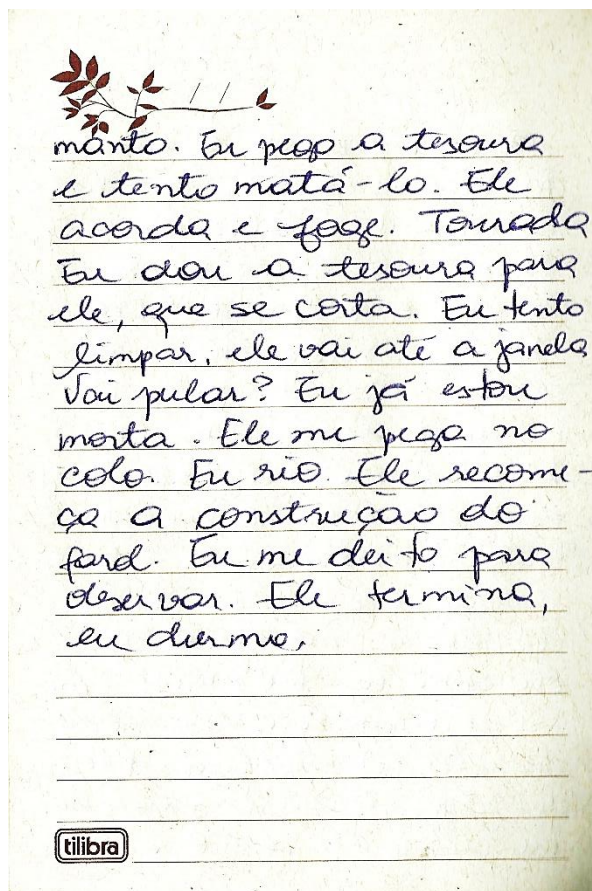 manto. Eu pego a tesoura
e tento matá-lo. Ele
acorda e foge. Tourada
Eu dou a tesoura para
ele, que se corta. Eu tento
limpar, ele vai até a janela
Vai pular? Eu já estou
morta. Ele me pega no
colo. Eu rio. Ele recome-
ça a construção do
farol. Eu me deito para
observar. Ele termina,
eu durmo.
tilibra